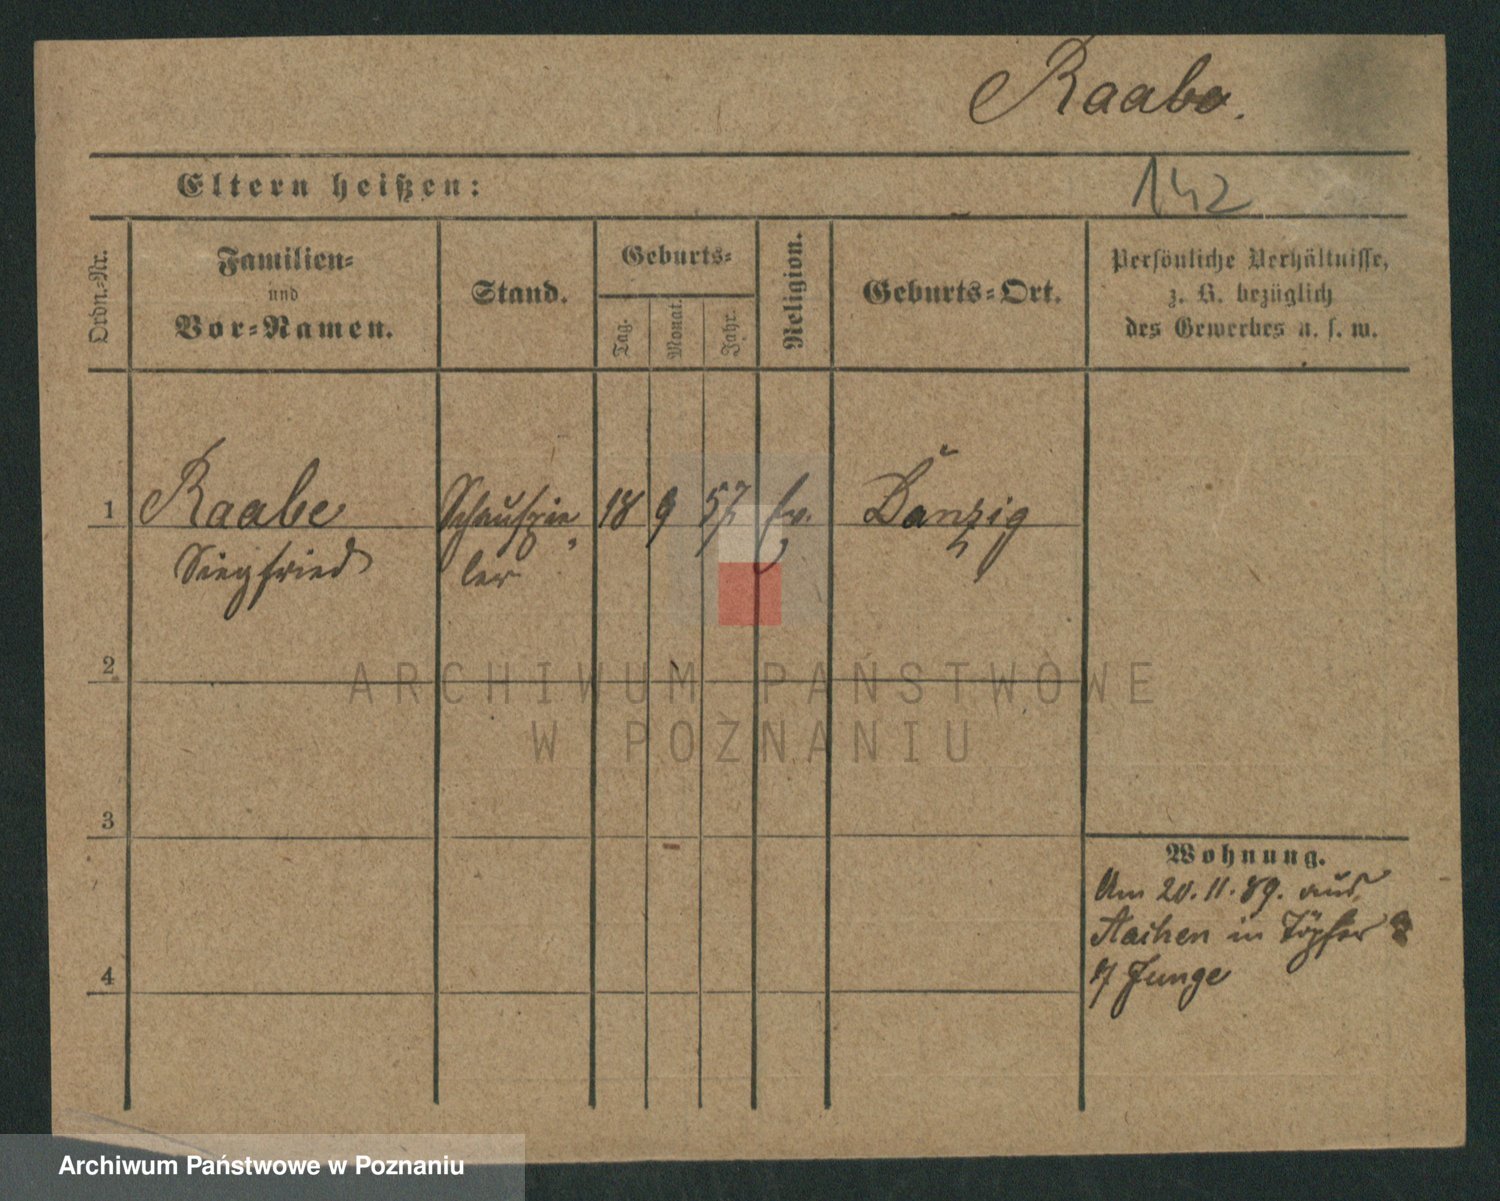 Raabe.
Eltern heißen:
142
Ordn.-Nr.
Familien-
und
Vor-Namen.
Stand.
Geburts-
Tag.
Monat.
Jahr.
Religion.
Geburts-Ort.
Persönliche Verhältnisse,
z. B. bezüglich
des Gewerbes u. s. w.
1
Raabe
Siegfried
Schauspie
ler
18
9
57
Ev.
Danzig
2
3
4
Wohnung.
Am 20.11.89. aus
Aachen in Töpfer
Junge
ARCHIWUM PAŃSTWOWE
W POZNANIU
Archiwum Państwowe w Poznaniu